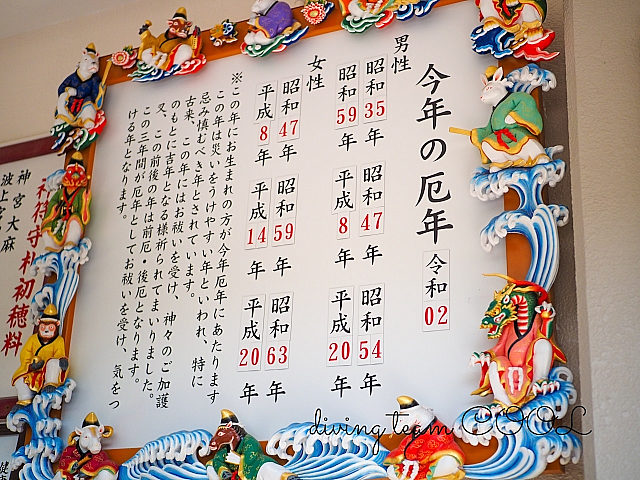 今年の厄年 令和02
男性
昭和35年 昭和47年 昭和54年
昭和59年 平成8年 平成20年
女性
昭和47年 昭和59年 昭和63年
平成8年 平成14年 平成20年
※この年にお生まれの方が今年厄年にあたります
この年は災いをうけやすい年といわれ、特に
忌み慎むべき年とされています。
古来、この年にはお祓いを受け、神々のご加護
のもとに吉年となる様祈られてまいりました。
又、この前後の年は前厄・後厄となります。
この三年間が厄年としてお祓いを受け、気をつ
ける年となります。
守札初穂料
神宮大麻
波上宮
diving team COOL